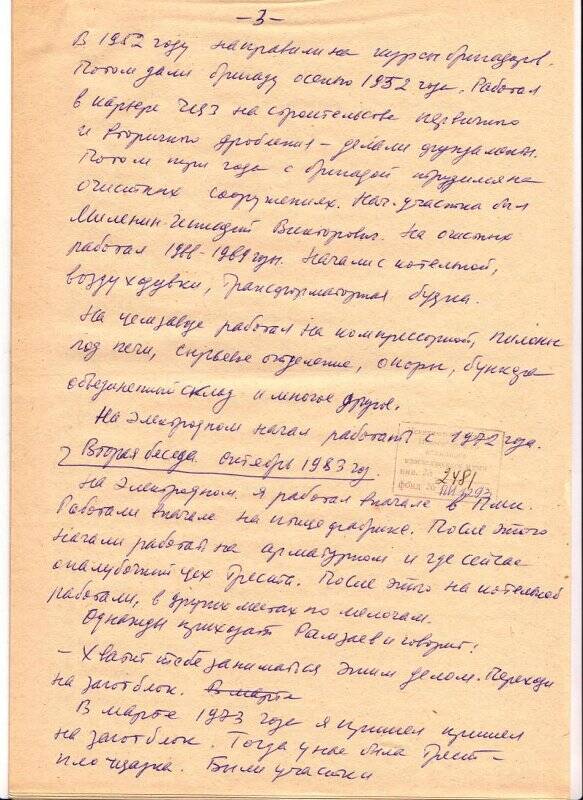 - 3 -
В 1952 году направили на курсы бригадиров.
Потом дали бригаду осенью 1952 года. Работал
в карьере ЧЦЗ на строительстве первичного
и вторичного дробления - делали фундаменты.
Потом три года с бригадой трудился на
очистных сооружениях. Нач. участка был
Миленин Геннадий Викторович. На очистных
работал годы. Начали с котельной,
воздуходувки, Трансформаторная будка.
На цемзаводе работал на компрессорной, пилоны
под печи, сырьевое отделение, опоры, бункера
объединенный склад и многое другое.
На Электродном начал работать с 1972 года.
Вторая беседа октябрь 1983 год.
На Электродном. Я работал вначале в ПМК.
Работали вначале на птицефабрике. После этого
начали работать на арматурном и где сейчас
опалубочный цех Треста. После этого на котельной
работали, в других местах по мелочам.
Однажды приходит Рамзаев и говорит:
- Хватит тебе заниматься этим делом. Переходи
на заготблок. В марте
В марте 1973 года я пришел пришел
на заготблок. Тогда у нас была Трест-
площадка. Были участки
инв. № 2481
фонд №